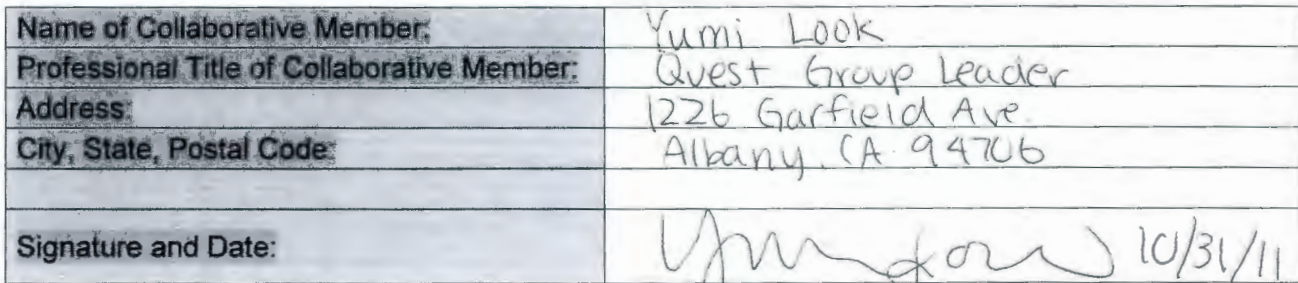 Name of Collaborative Member: Yumi Look
Professional Title of Collaborative Member: Quest Group Leader
Address: 1226 Garfield Ave.
City, State, Postal Code: Albany, CA 94706
Signature and Date: 10/31/11